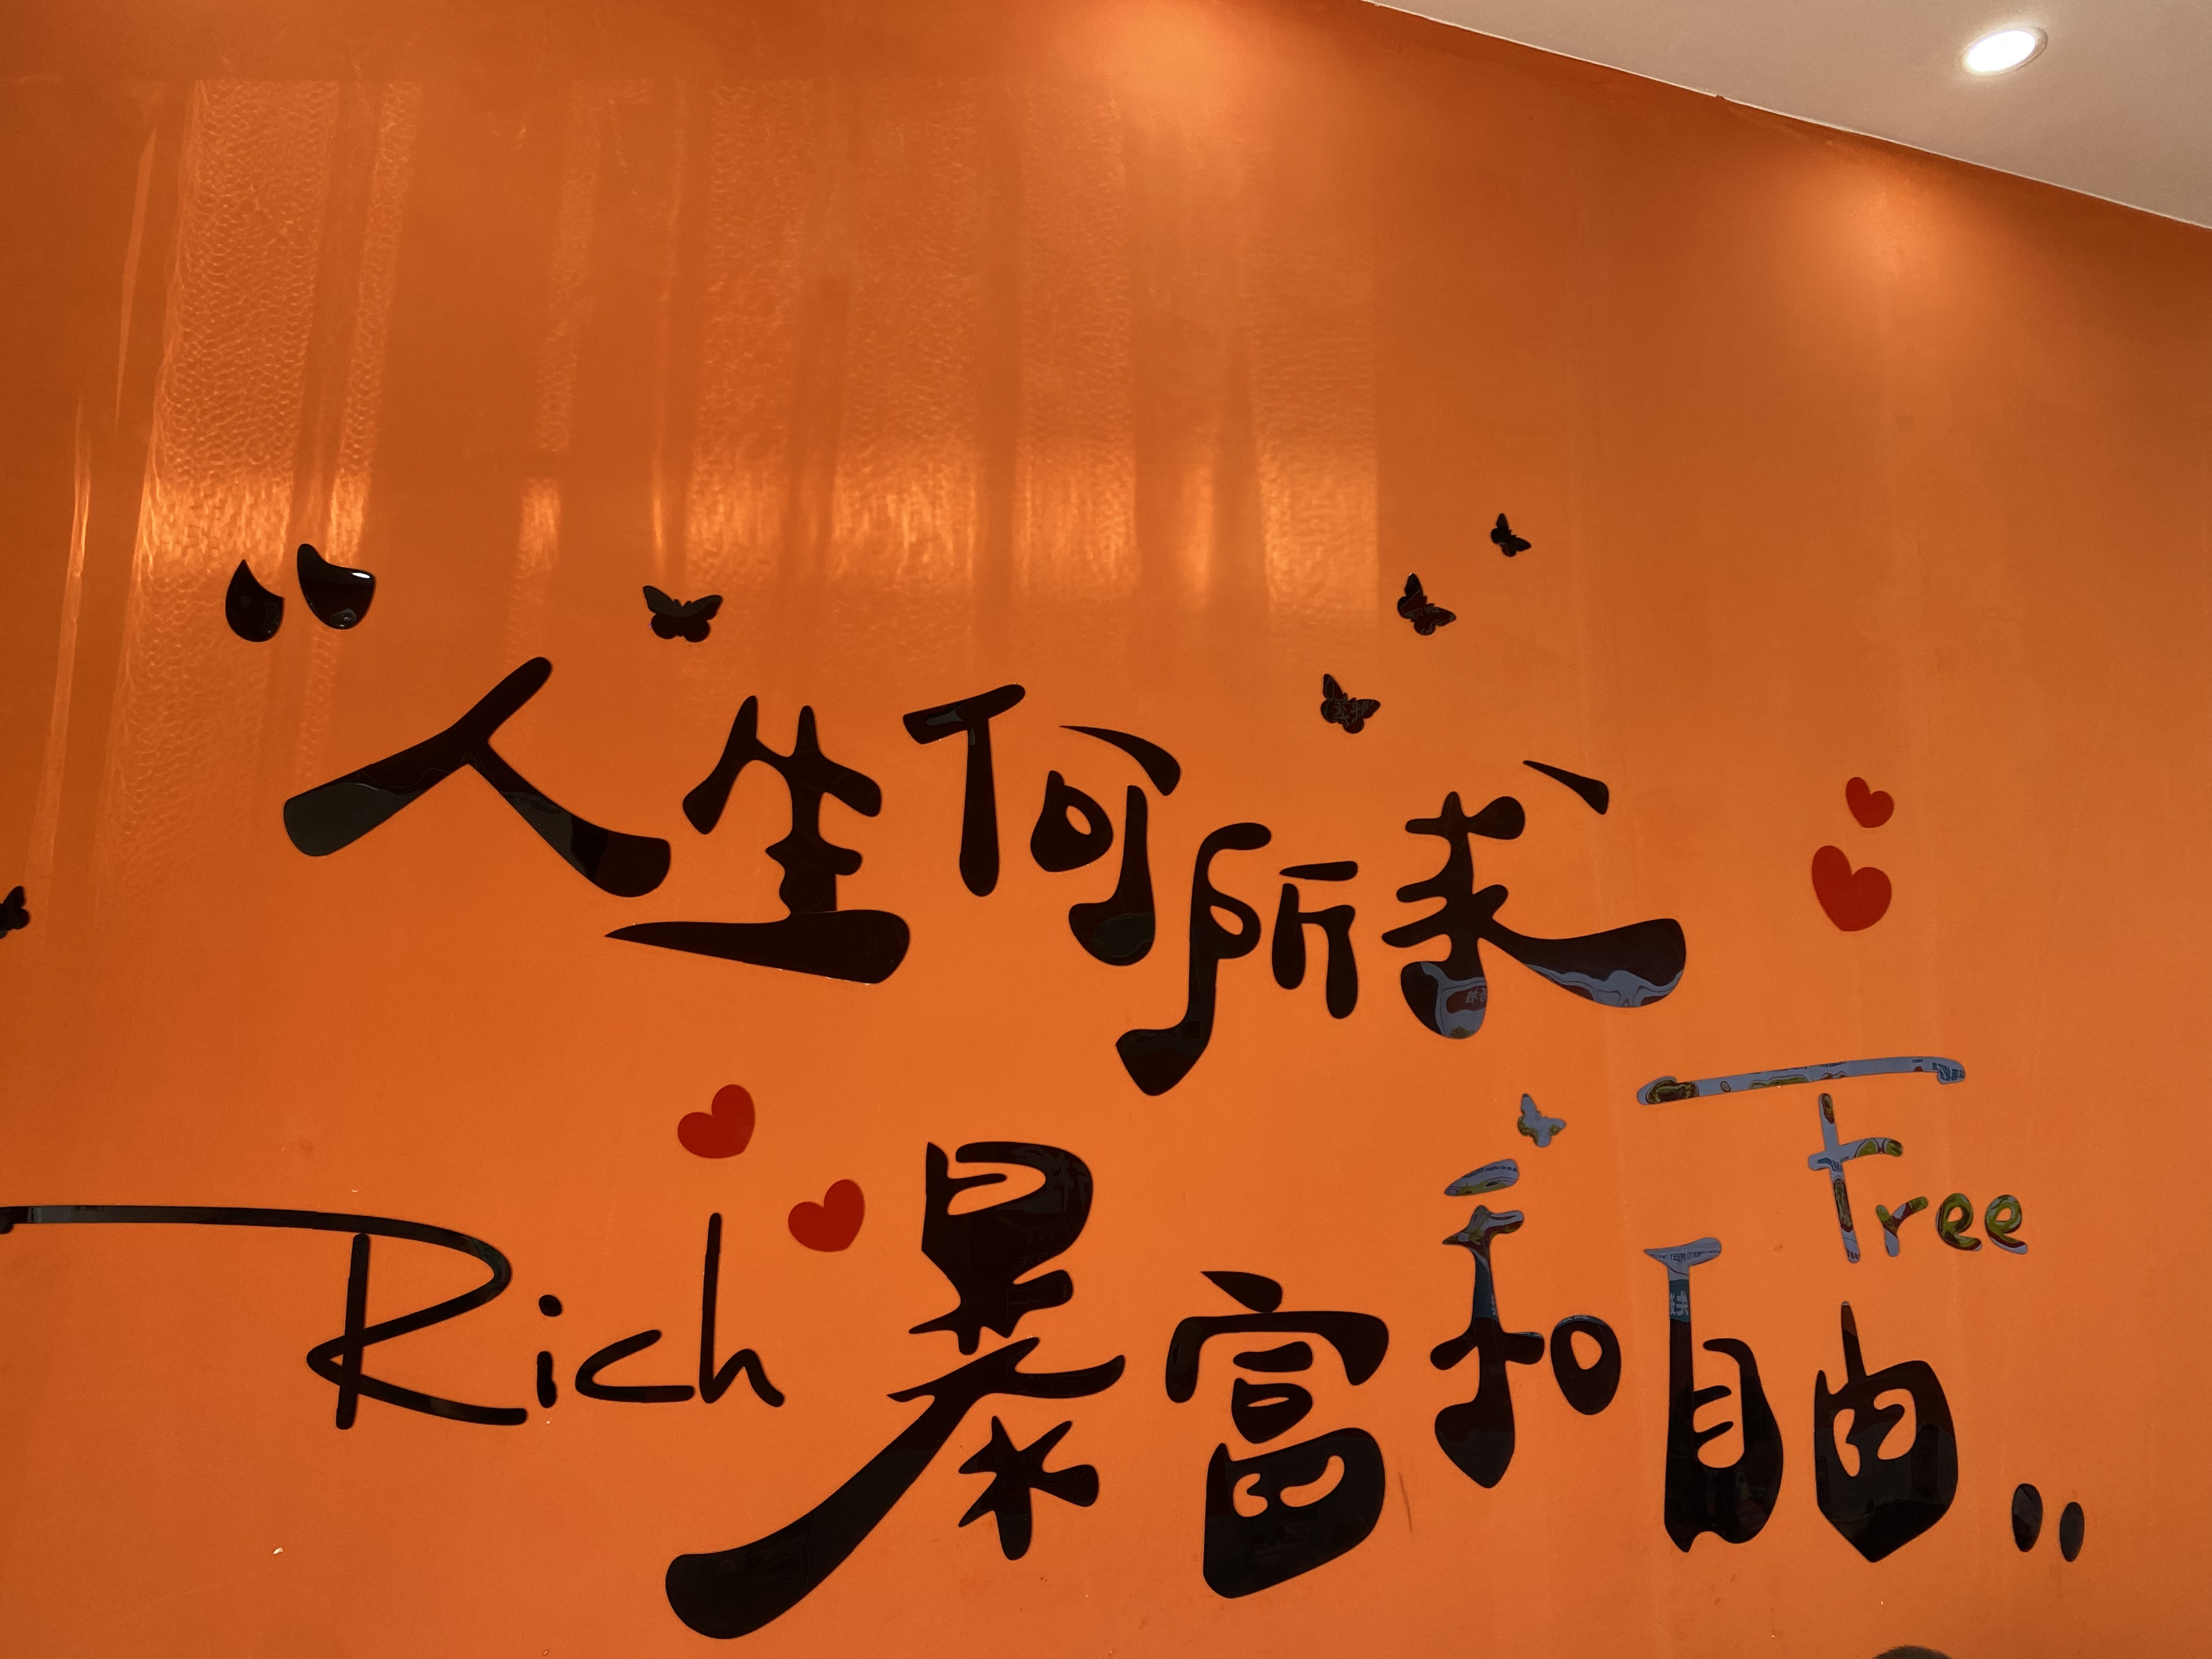 “人生何所求
Free
Rich 暴富和自由..